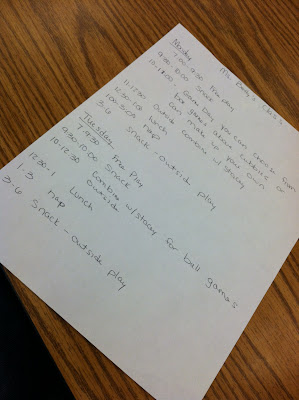 Ms. Class
Monday
7:00-9:30 Free Play
9:30-10:00 Snack
10-11:00 Game Day you can choose from
box games about or
can make up your own or
combine w/stacey
11-12:30 outside
12:30-1:00 Lunch
1:00-3:00 nap
3-6 snack - outside play
Tuesday
7-9:30 Free Play
9:30-10:00 Snack
10-12:30 Combine w/stacey for ball games
outside
12:30-1 Lunch
1-3 nap
3-6 Snack - outside play